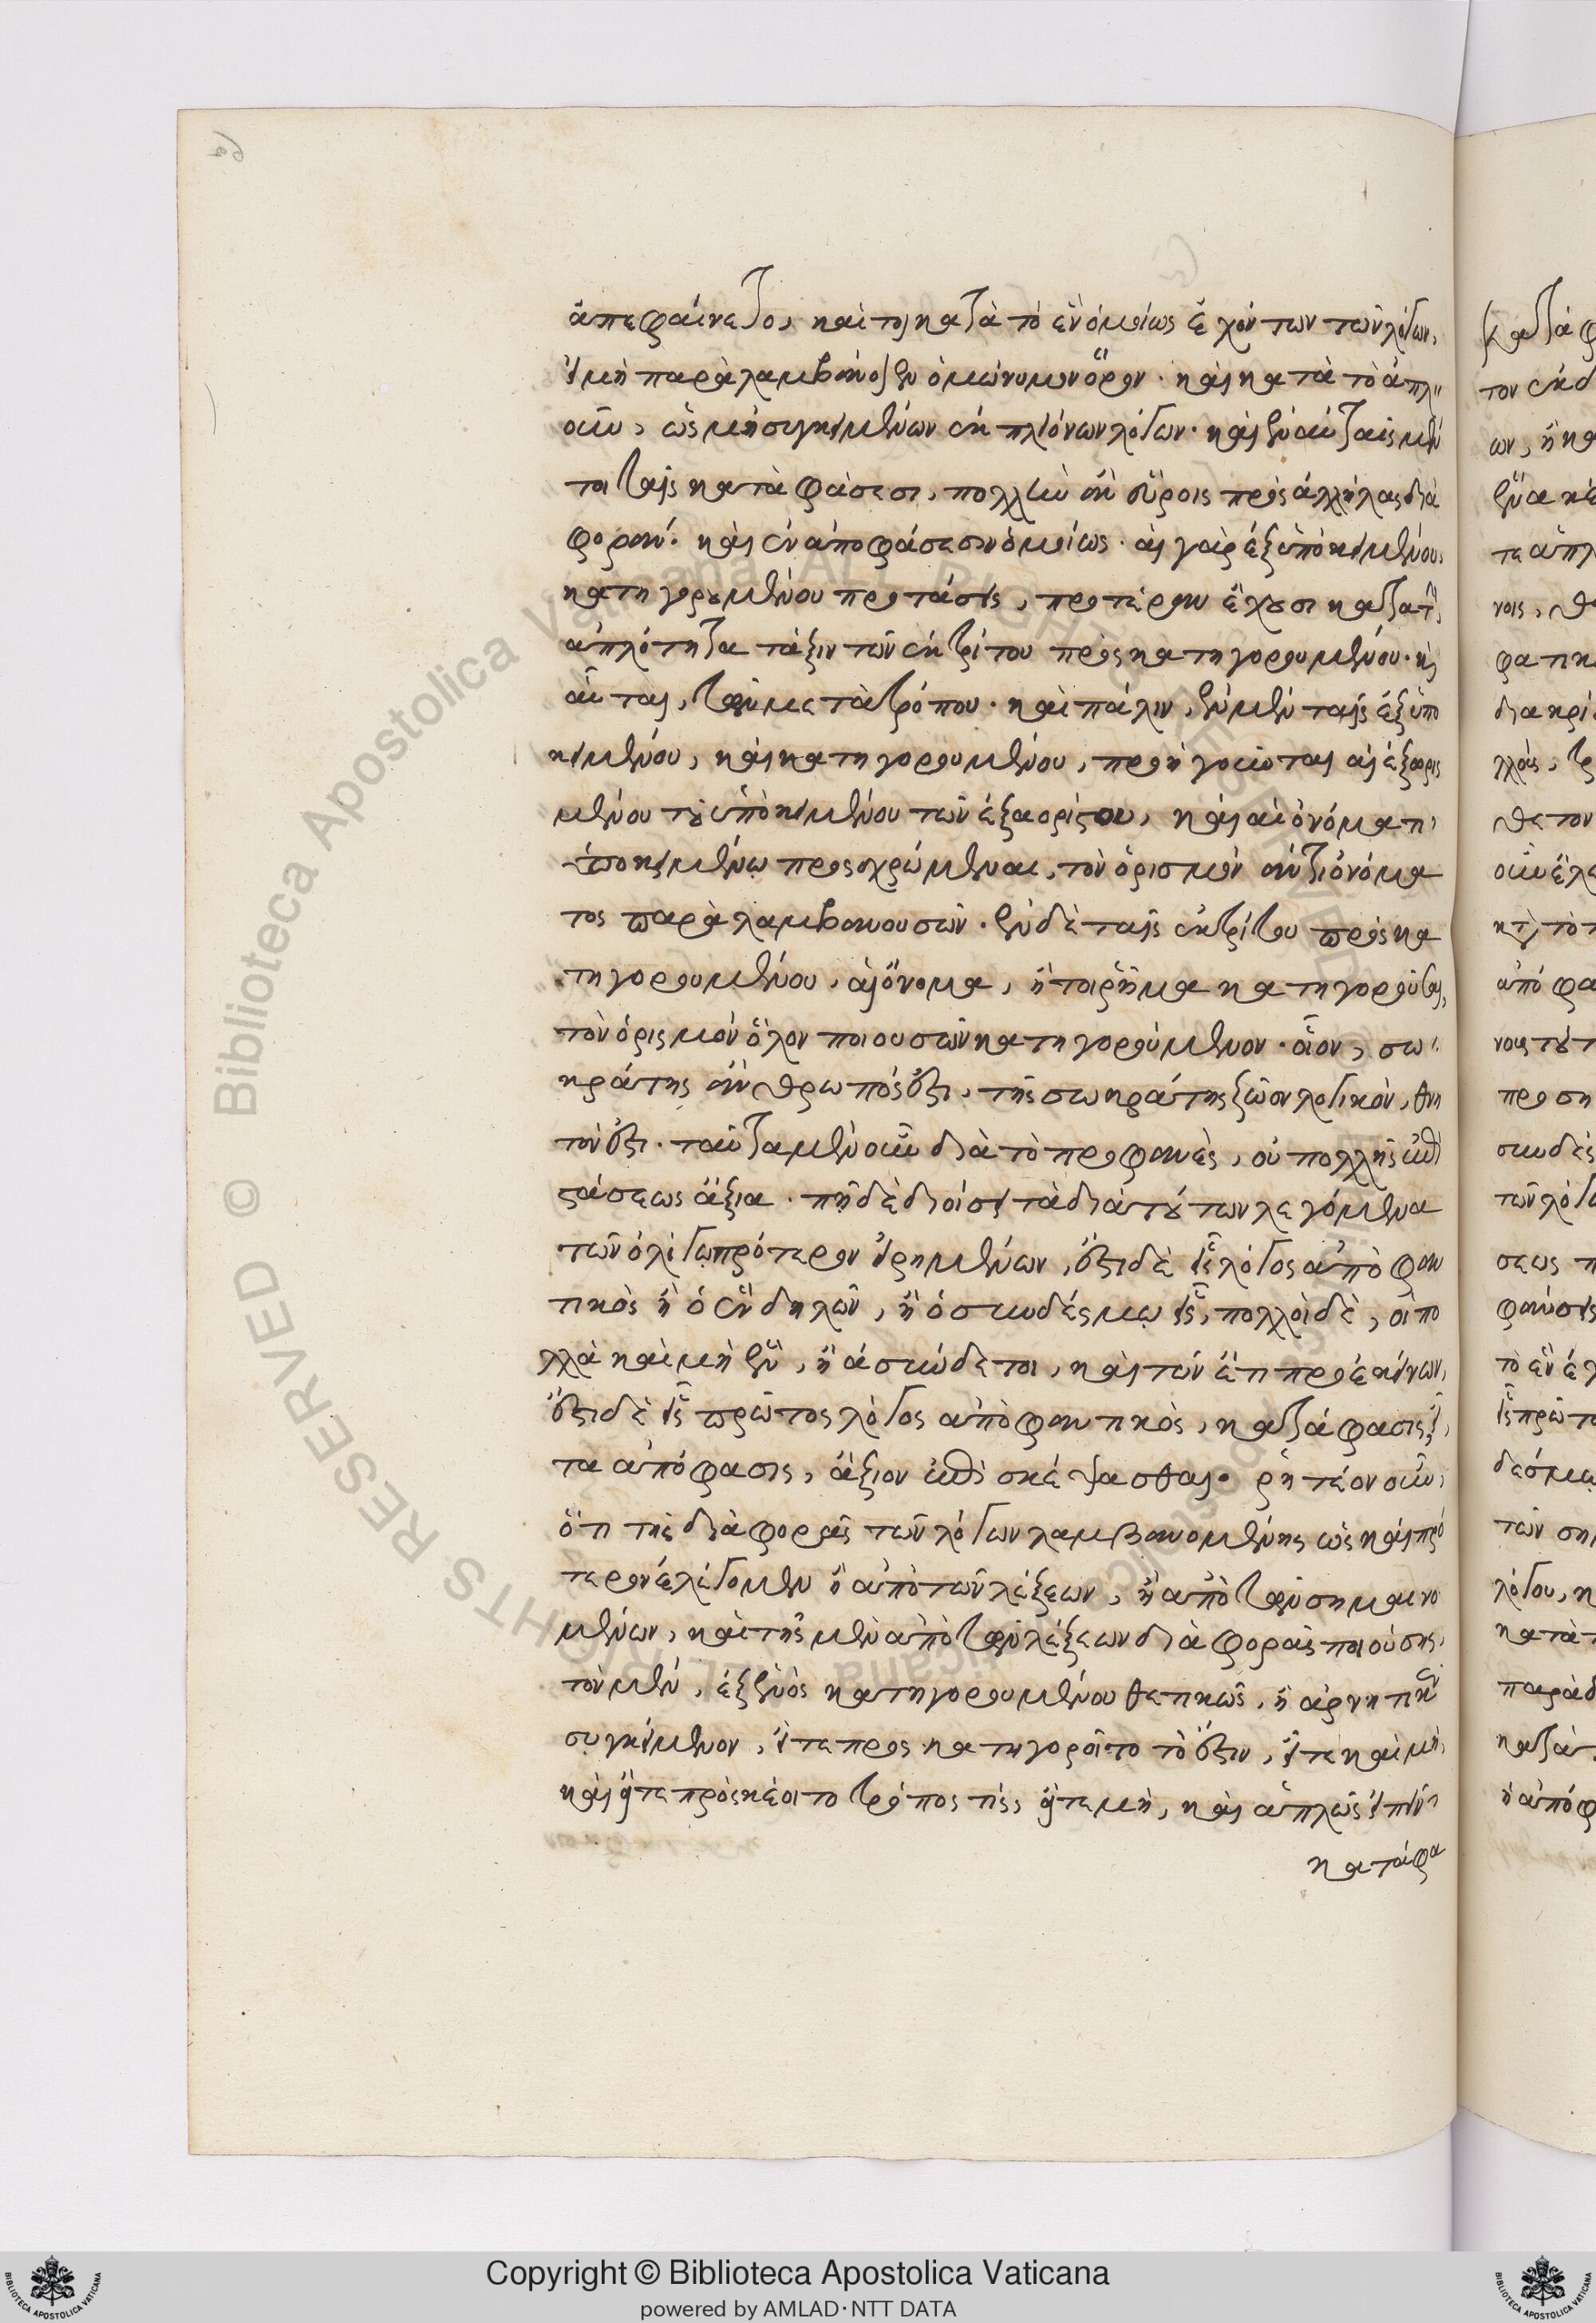 ἀπεφαίνετο, καίτοι κατὰ τὸ ἓν ὁμοίως ἐχόντων τῶν λόγων,
εἰ μὴ παραλαμβάνοιεν ὁμώνυμον ὅρον. καὶ κατὰ τὸ ἁπλ
οῦν, ὡς μὴ συγκειμένων ἐκ πλειόνων λόγων. καὶ ἐν αὐταῖς μέν
τοι ταῖς καταφάσεσι, πολλὴν ἂν εὕροις πρὸς ἀλλήλας δια
φοράν. καὶ ἐν ἀποφάσεσιν ὁμοίως. αἱ γὰρ ἐξ ὑποκειμένου
κατηγορουμένου προτάσεις, προτέραν ἔχουσι κατὰ τὴν
ἁπλότητα τάξιν τῶν ἐκ τρίτου προσκατηγορουμένου. καὶ
αὗται, τῶν μετὰ τρόπου. καὶ πάλιν, ἐν μὲν ταῖς ἐξ ὑπο
κειμένου, καὶ κατηγορουμένου, προηγοῦνται αἱ ἐξ ὡρισ
μένου τοῦ ὑποκειμένου τῶν ἐξ ἀορίστου, καὶ αἱ ὀνόματι
ὑποκειμένῳ προσχρώμεναι, τὸν ὁρισμὸν ἀντὶ ὀνόμα
τος παραλαμβανουσῶν. ἐν δὲ ταῖς ἐκ τρίτου προσκα
τηγορουμένου, αἱ ὄνομα, ἤτοι ῥῆμα κατηγοροῦσαι,
τὸν ὁρισμὸν ὅλον ποιουσῶν κατηγορούμενον. οἷον, σω
κράτης ἄνθρωπός ἐστι, τῆς σωκράτης ζῷον λογικὸν, θνη
τόν ἐστι. ταῦτα μὲν οὖν διὰ τὸ προφανὲς, οὐ πολλῆς ἐπι
στάσεως ἄξια. πῇ δὲ διοίσει τὰ διὰ τούτων λεγόμενα
τῶν ὀλίγῳ πρότερον εἰρημένων, ἔστι δὲ εἷς λόγος ἀποφαν
τικὸς ἢ ὁ ἓν δηλῶν, ἢ ὁ συνδέσμῳ εἷς, πολλοὶ δὲ, οἱ πο
λλὰ καὶ μὴ ἓν, ἢ ἀσύνδετοι, καὶ τῶν ἔτι πρὸ ἐκείνων,
ἔστι δὲ εἷς πρῶτος λόγος ἀποφαντικὸς, κατάφασις, εἶ
τα ἀπόφασις, ἄξιον ἐπισκέψασθαι. ῥητέον οὖν,
ὅτι τῆς διαφορᾶς τῶν λόγων λαμβανομένης ὡς καὶ πρό
τερον ἐλέγομεν ἢ ἀπὸ τῶν λέξεων, ἢ ἀπὸ τῶν σημαινο
μένων, καὶ τῆς μὲν ἀπὸ τῶν λέξεων διαφορᾶς ποιούσης,
τὸν μὲν, ἐξ ἑνὸς κατηγορουμένου θετικῶς, ἢ ἀρνητικῶς
συγκείμενον, εἴτε προσκατηγοροῖτο τὸ ἔστιν, εἴτε καὶ μὴ,
καὶ εἴτε προσκέοιτο τρόπος τίς, εἴτε μὴ, καὶ ἁπλῶς εἰπεῖν
καταφα